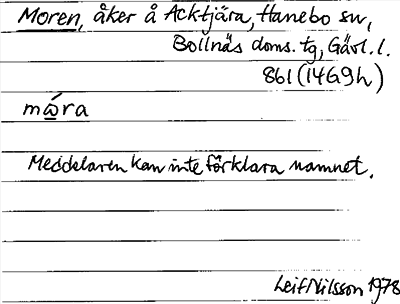 Moren, åker å Acktjära, Hanebo sn,
Bollnäs doms. tg, Gävl. l.
861 (14G9h)
mώra
Meddelaren kan inte förklara namnet.
Leif Nilsson 1978